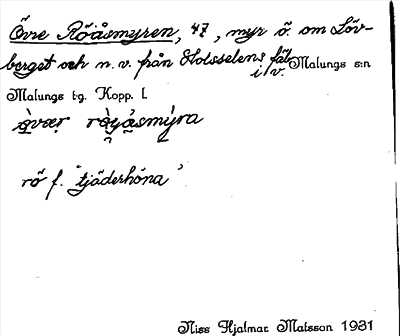 Övre Röåsmyren, 47, myr ö. om Löv-
berget och n. v. från Holsselens fäb.
i v. Malungs s:n
Malungs t-g. Kopp. l.
ø̀vær røyåsmýra
rö f. "tjäderhöna"
Niss Hjalmar Matsson 1931